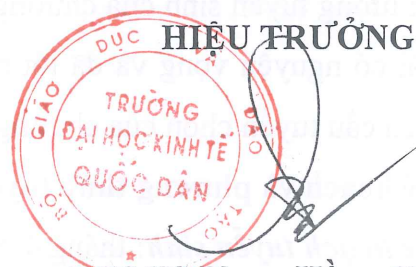 HIỆU TRƯỞNG
BỘ GIÁO DỤC VÀ ĐÀO TẠO
TRƯỜNG
ĐẠI HỌC KINH TẾ
QUỐC DÂN